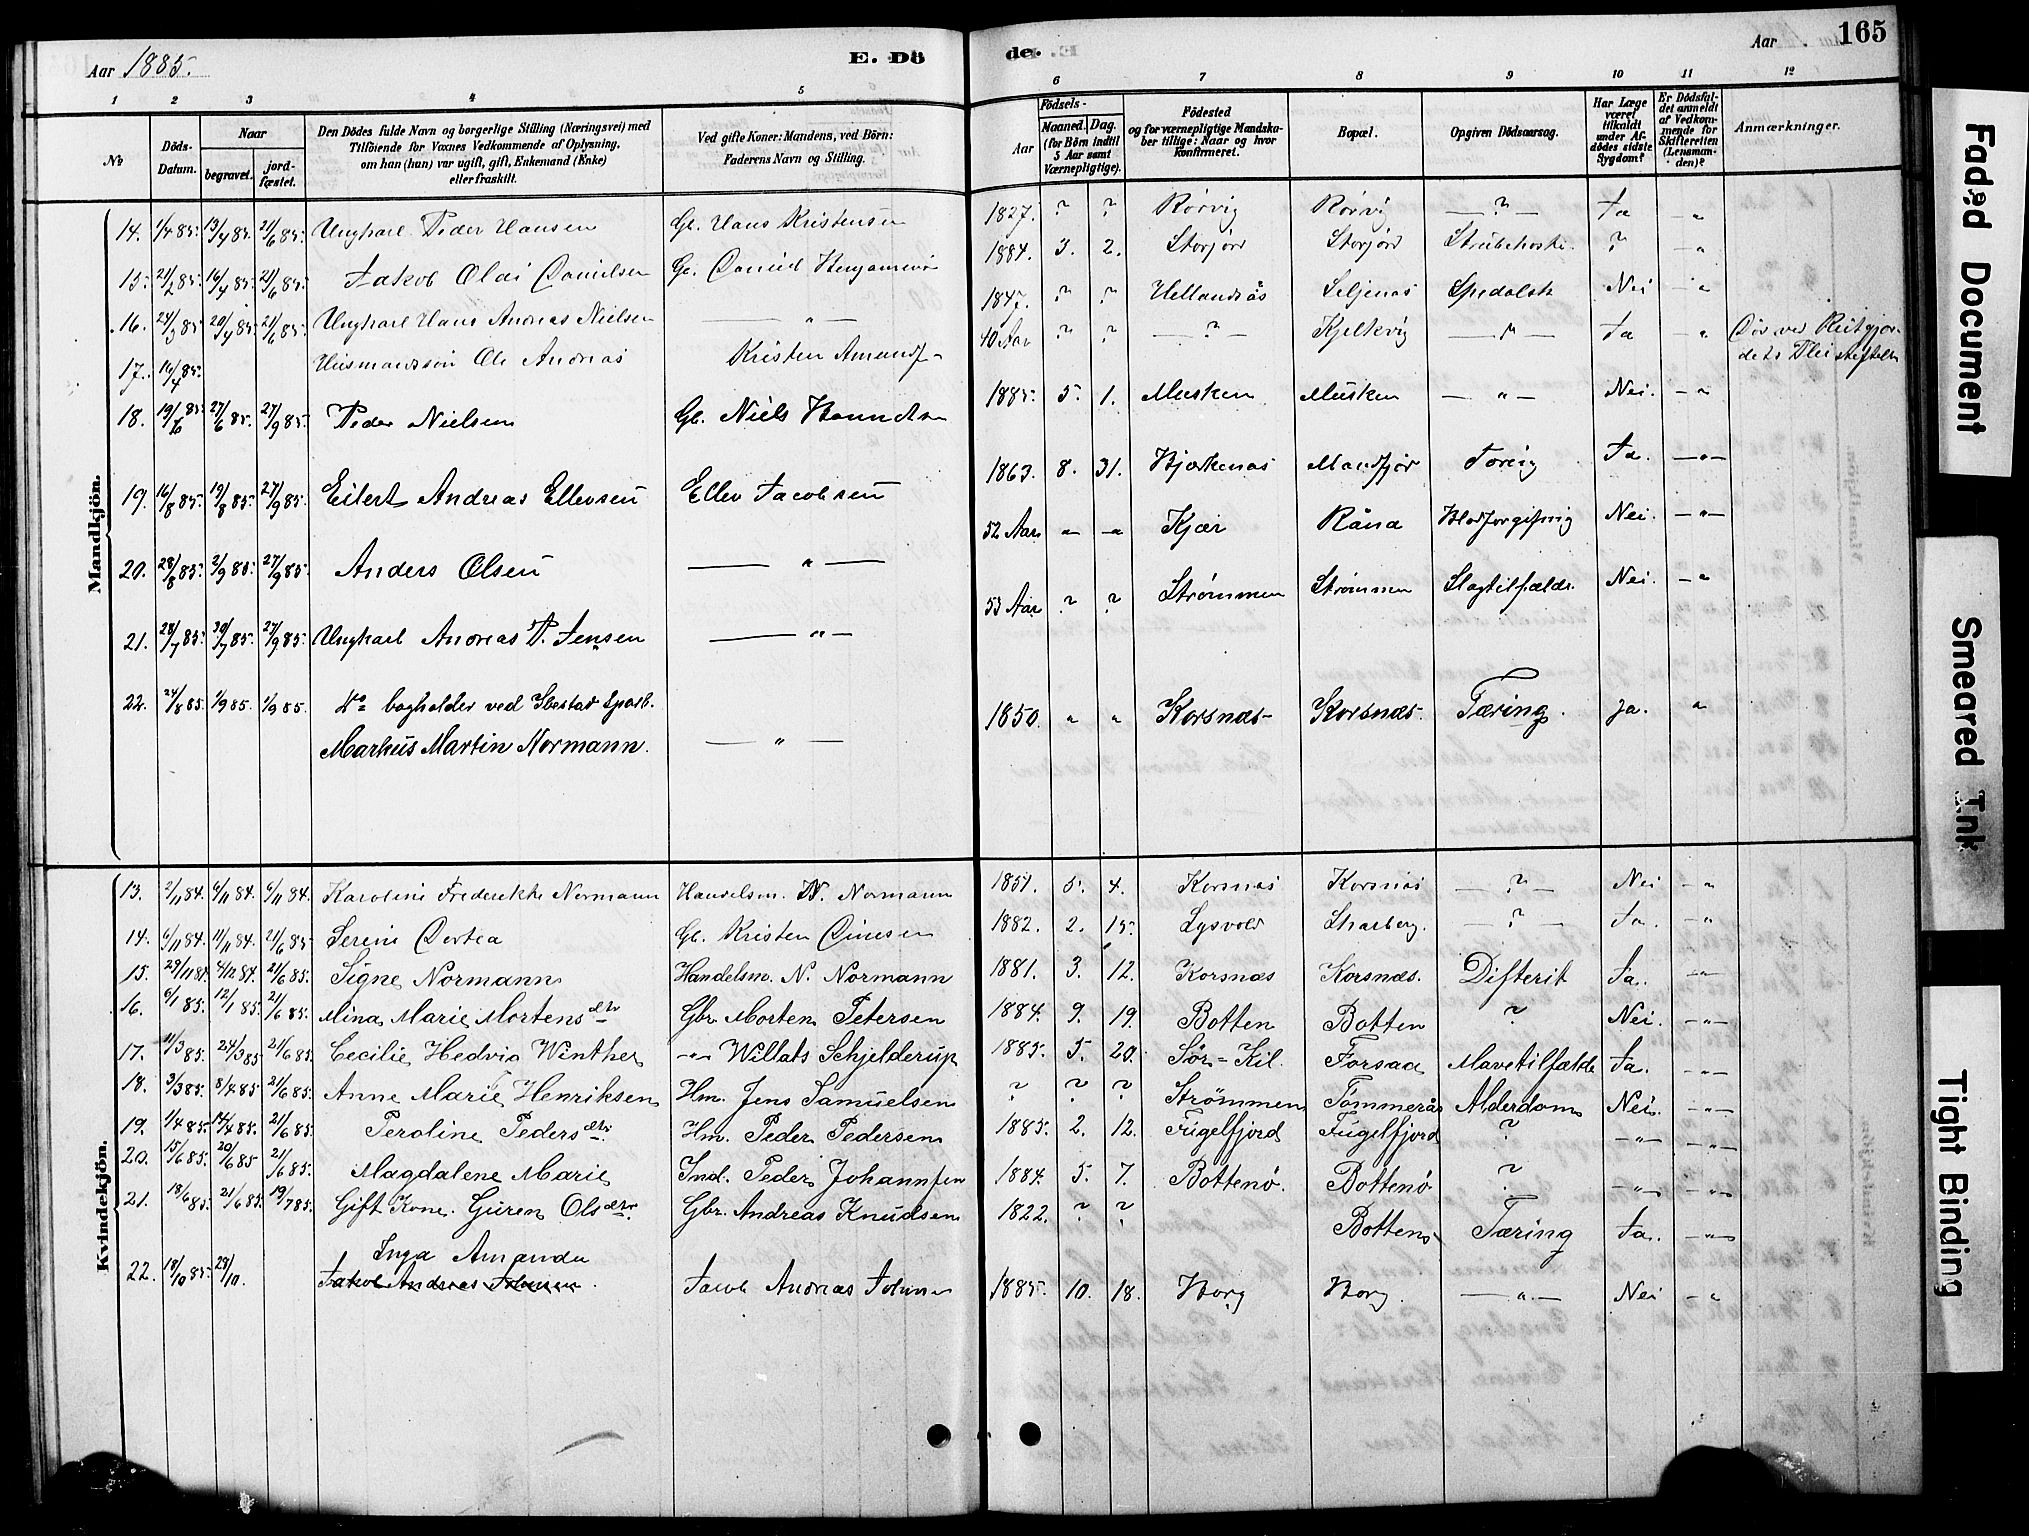 Aar 1885.
E. Dö
de.
Aar
165
1 2 3 4 5 6 7 8 9 10 11 12
No
Döds-Datum.
Naar
begravet.
jord-fæstet.
Den Dödes fulde Navn og borgerlige Stilling (Næringsvei) med
Tilföiende for Voxnes Vedkommende af Oplysning,
om han (hun) var ugift, gift, Enkemand (Enke)
eller fraskilt.
Ved gifte Koner: Mandens, ved Börn:
Faderens Navn og Stilling.
Födsels-
Aar
Maaned. Dag.
(for Börn indtil
5 Aar samt
Værnepligtige).
Födested
og for værnepligtige Mandska-
ber tillige: Naar og hvor
konfirmeret.
Bopæl.
Opgiven Dödsaarsag.
Har Læge
været
tilkaldt
under Af-
dödes sidste
Sygdom?
Er Dödsfal-
det anmeldt
af Vedkom-
mende for
Skifteretten
(Lensman-
den)?
Anmærkninger.
Mandkjön.
14. 1/4 85. 13/4 85. 21/6 85. Ungkarl Peder Hansen Gb. Hans Kristensen 1827. ? ? Rörvig Rörvig — ? — Ja - "
15. 21/2 85. 16/4 85. 21/6 85. Jakob Olai Danielsen Gb. Daniel Benjaminsen 1884. 3. 2. Storjord Storjord Strubehoste. ? - "
16. 24/3 85 20/4 85. 21/6 85. Ungkarl Hans Andreas Nielsen — " — 1847. ? ? Hellandsås Seljenæs Spedalsk Nei - "
17. 16/4 85. Husmandssön Ole Andreas Kristen Amundsen 40 Aar ? ? — ? — Kjelkvig — " — Ja " Död ved Reitgjer-
dets Pleiestiftelse
18. 19/6 85. 27/6 85. 27/9 85. Peder Nielsen Gb. Niels 1885. 5. 1. Musken Musken — " — Nei. - "
19. 16/8 85. 19/8 85. 27/9 85. Eilert Andreas Ellevsen Ellev Jacobsen 1863. 8. 31. Bjerkenæs Mandfjor Tæring Ja. — " —
20. 28/8 85. 3/9 85. 27/9 85. Anders Olsen — " — 52 Aar - " - " Kjær Råna Blodforgiftning Nei. — " —
21. 28/7 85. 30/7 85. 27/9 85. Ungkarl Andreas P. Jensen — " — 53 Aar ? ? Strømmen Strømmen Slagtilfælde. Nei. - "
22. 24/8 85. 1/9 85. 1/9 85. Do bogholder ved Ibestad Sparb.
Markus Martin Normann. — " — 1850. " " Korsnæs- Korsnæs. Tæring. Ja. "
Kvindekjön.
13. 2/11 84. 6/11 84. 6/11 84. Karoline Frederikke Normann Handelsm. N. Normann 1851. 5. 4. Korsnæs Korsnæs — ? — Nei - "
14. 6/11 84. 11/11 84. 21/6 85 Serine Dortea Gb. Kristen Dinesen 1882. 2. 15. Lysvold Skarberg. — ? — Ja. - "
15. 29/11 84. 4/12 84. 21/6 85. Signe Normann Handelsm. N. Normann 1881. 3. 12. Korsnæs Korsnæs. Difterit Ja. - "
16. 6/1 85. 12/1 85. 21/6 85. Mina Marie Mortensdtr Gbr. Morten Petersen 1884. 9. 19. Botten Botten ? Nei. - " -
17. 11/3 85. 24/3 85 21/6 85. Cecilie Hedvig Winther - " - Willats Schjelderup 1885. 5. 20. Sör-Kil. Forsaa Mavetilfælde Ja. - " -
18. 3/3 85. 8/4 85 21/6 85. Anne Marie Henriksen Hm. Jens Samuelsen ? ? ? Strömmen Tömmerås Alderdom Nei. - " -
19. 1/4 85. 14/4 85. 21/6 85. Peroline Pedersdtr. Hm. Peder Pedersen 1885. 2. 12. Fugelfjord Fugelfjord ? - " - - " -
20. 15/6 85. 20/6 85 21/6 85. Magdalene Marie Ind. Peder Johannsen 1884. 5. 7. Bottenö. Bottenö ? - " - - " -
21. 18/6 85. 21/6 85. 19/7 85. Gift Kone. Guren Olsdtr. Gbr. Andreas Knudsen 1822. ? ? Botten Tæring Ja. - " -
22. 18/10 85. 28/10. Inga Amanda
Jakob Andreas Johnsen. Jacob Andreas Johnsen 1885. 10. 18. Borg Borg. — " — Nei - "
Faded Document
Smeared Ink
Tight Binding